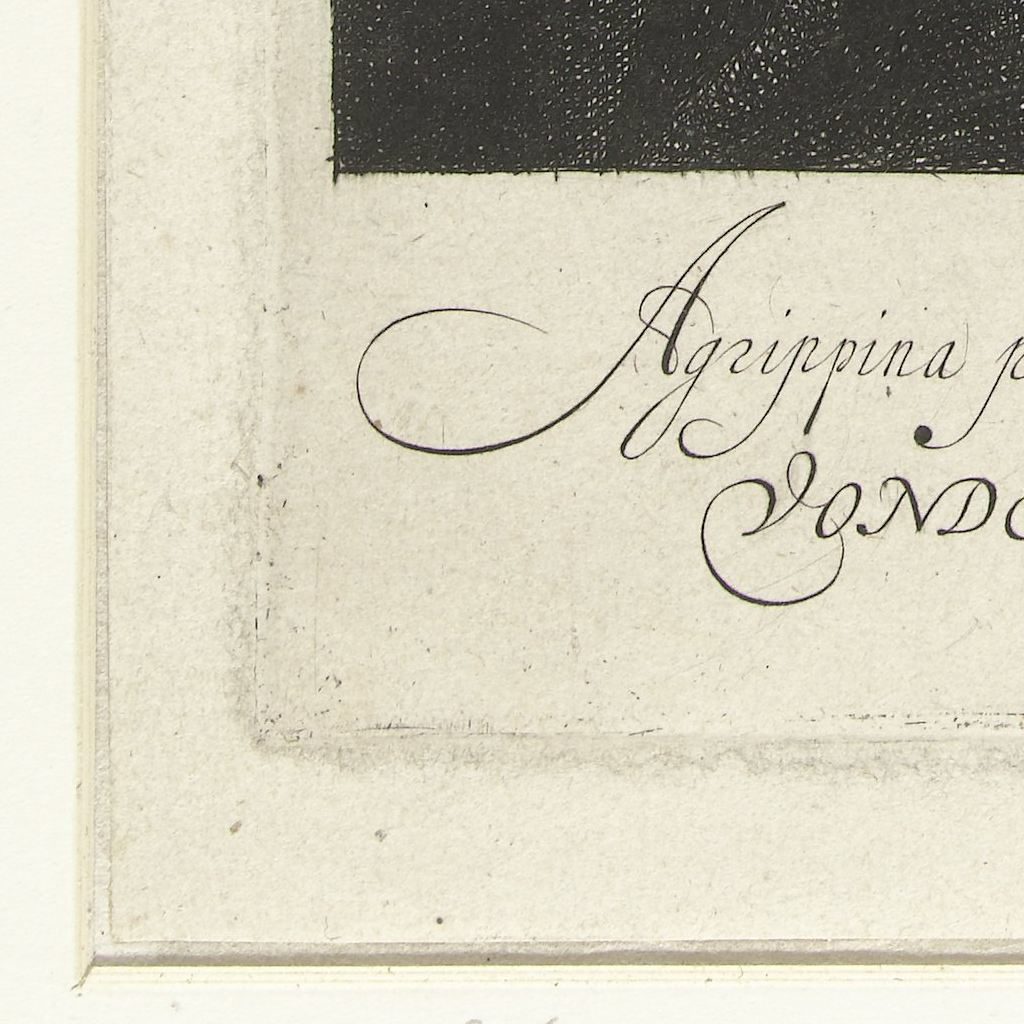 Agrippina p
VONDE